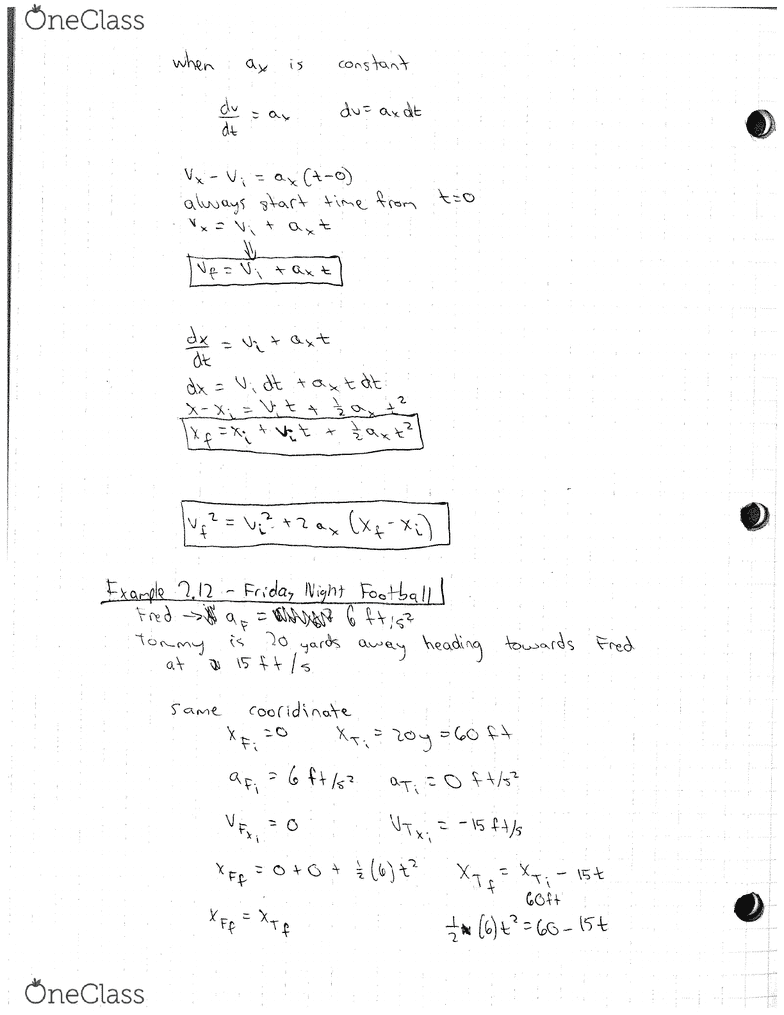 OneClass
when ax is constant
dv/dt = ax dv = ax dt
Vx - Vi = ax (t-0)
always start time from t=0
Vx = Vi + ax t
⇓
Vf = Vi + ax t
dx/dt = Vi + ax t
dx = Vi dt + ax t dt
x - xi = Vi t + 1/2 ax t²
xf = xi + Vi t + 1/2 ax t²
Vf² = Vi² + 2 ax (xf - xi)
Example 2.12 - Friday Night Football
Fred → aF = 6 ft/s²
Tommy is 20 yards away heading towards Fred
at 15 ft/s
same cooridinate
xFi = 0 xTi = 20y = 60 ft
aFi = 6 ft/s² aTi = 0 ft/s²
VFxi = 0 VTxi = -15 ft/s
xFf = 0 + 0 + 1/2 (6) t² xTf = xTi - 15t
60ft
xFf = xTf 1/2 (6) t² = 60 - 15t
OneClass